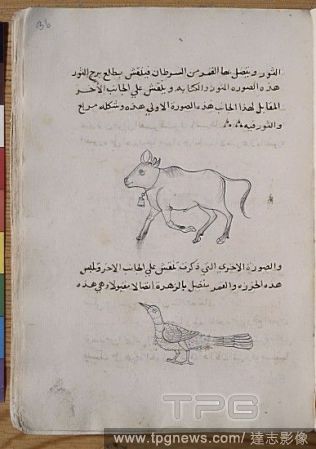 36
الثور ويتصل بها القمر من السرطان فينقش بطالع برج الثور
هذه الصورة الثور والكتابه وينقش علي الجانب الآخر
المقابل لهذا الجانب هذه الصورة الاولي هذه وشكله مربع
والثور فيه
والصورة الاخري التي ذكرت تنقش علي الجانب الاخر وتلبس
هذه الخرزه والقمر متصل بالزهرة اتصالا مقبولا وهي هذه
TPG
www.tpgnews.com/ 達志影像